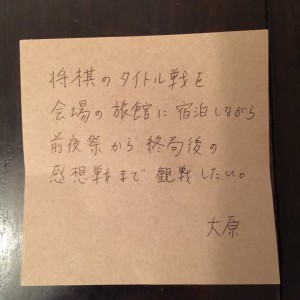 将棋のタイトル戦を
会場の旅館に宿泊しながら
前夜祭から終局後の
感想戦まで観戦したい。
大原